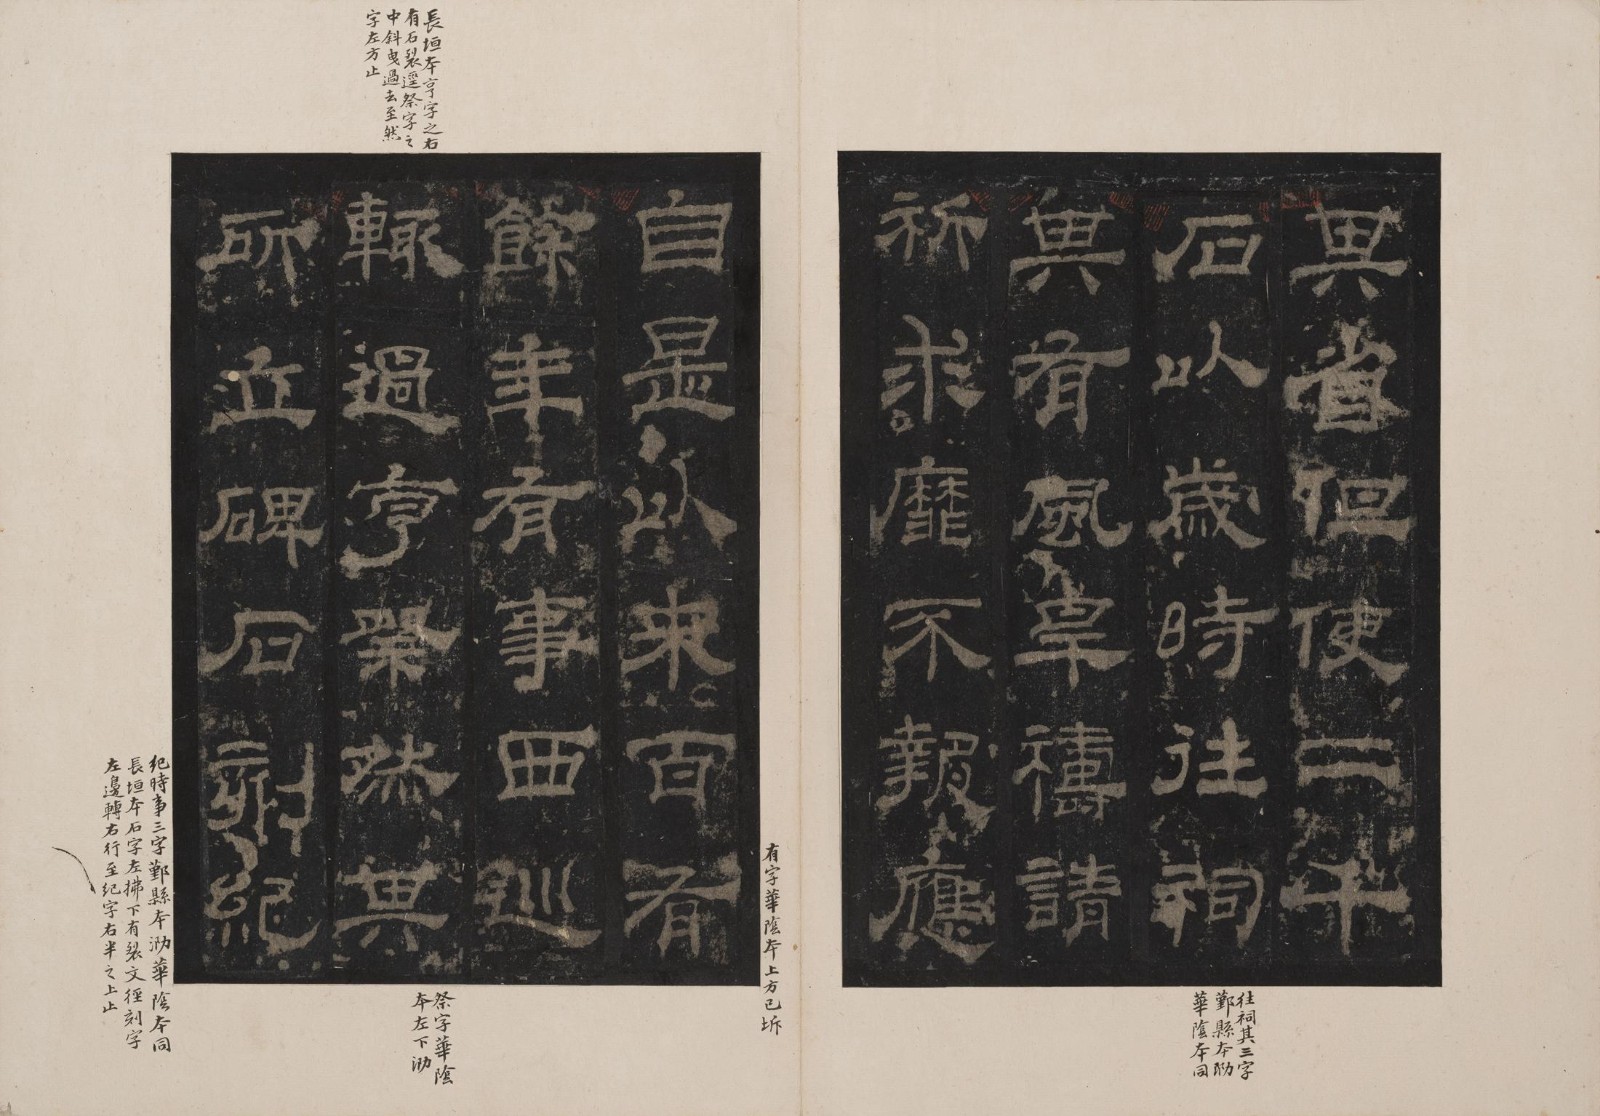 其省但使二千
石以歲時往祠
其有風旱禱請
祈求靡不報應
往祠其三字
鄞縣本泐
華陰本同
自是以來百有
餘年有事西巡
輒過亨祭然其
所立碑石刻紀
有字華陰本上方已坼
長垣本亨字之右
有石裂逕祭字之
中斜曳過去至然
字左方止
祭字華陰
本左下泐
紀時事三字鄞縣本泐華陰本同
長垣本石字左拂下有裂文徑刻字
左邊轉右行至紀字右半之上止